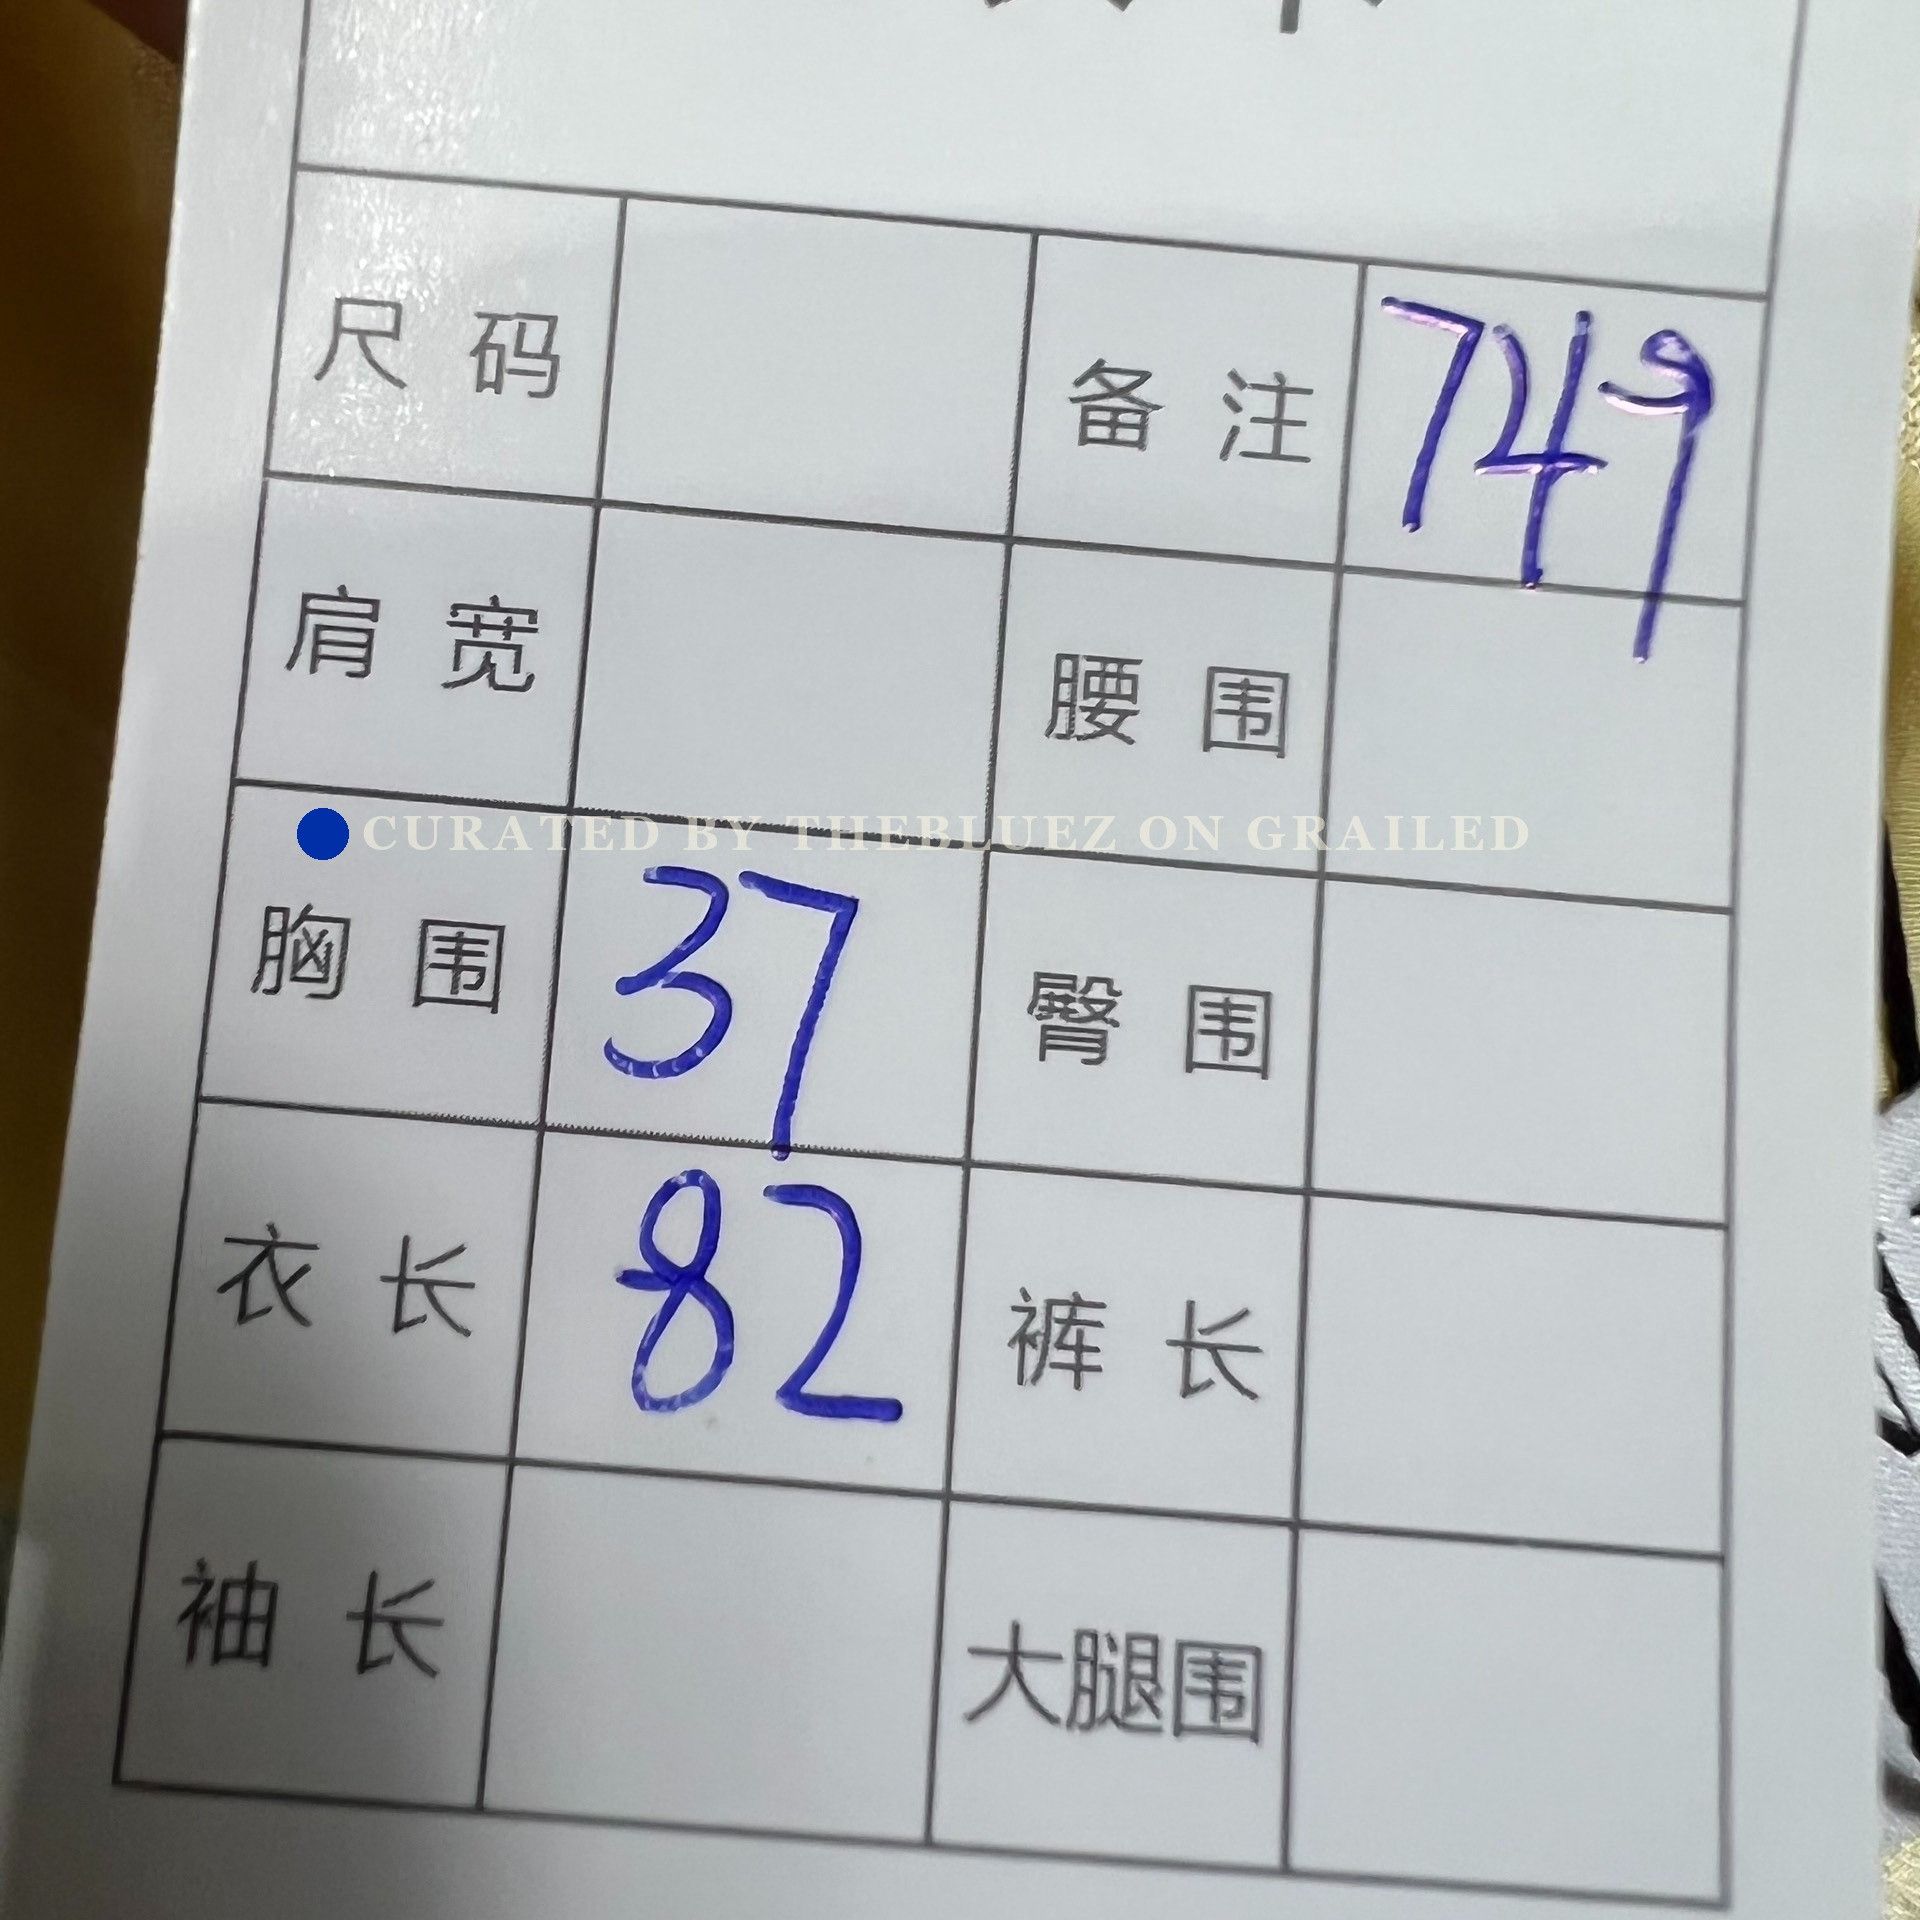 尺码 备注 749
肩宽 腰围
CURATED BY THEBLUEZ ON GRAILED
胸围 37 臀围
衣长 82 裤长
袖长 大腿围